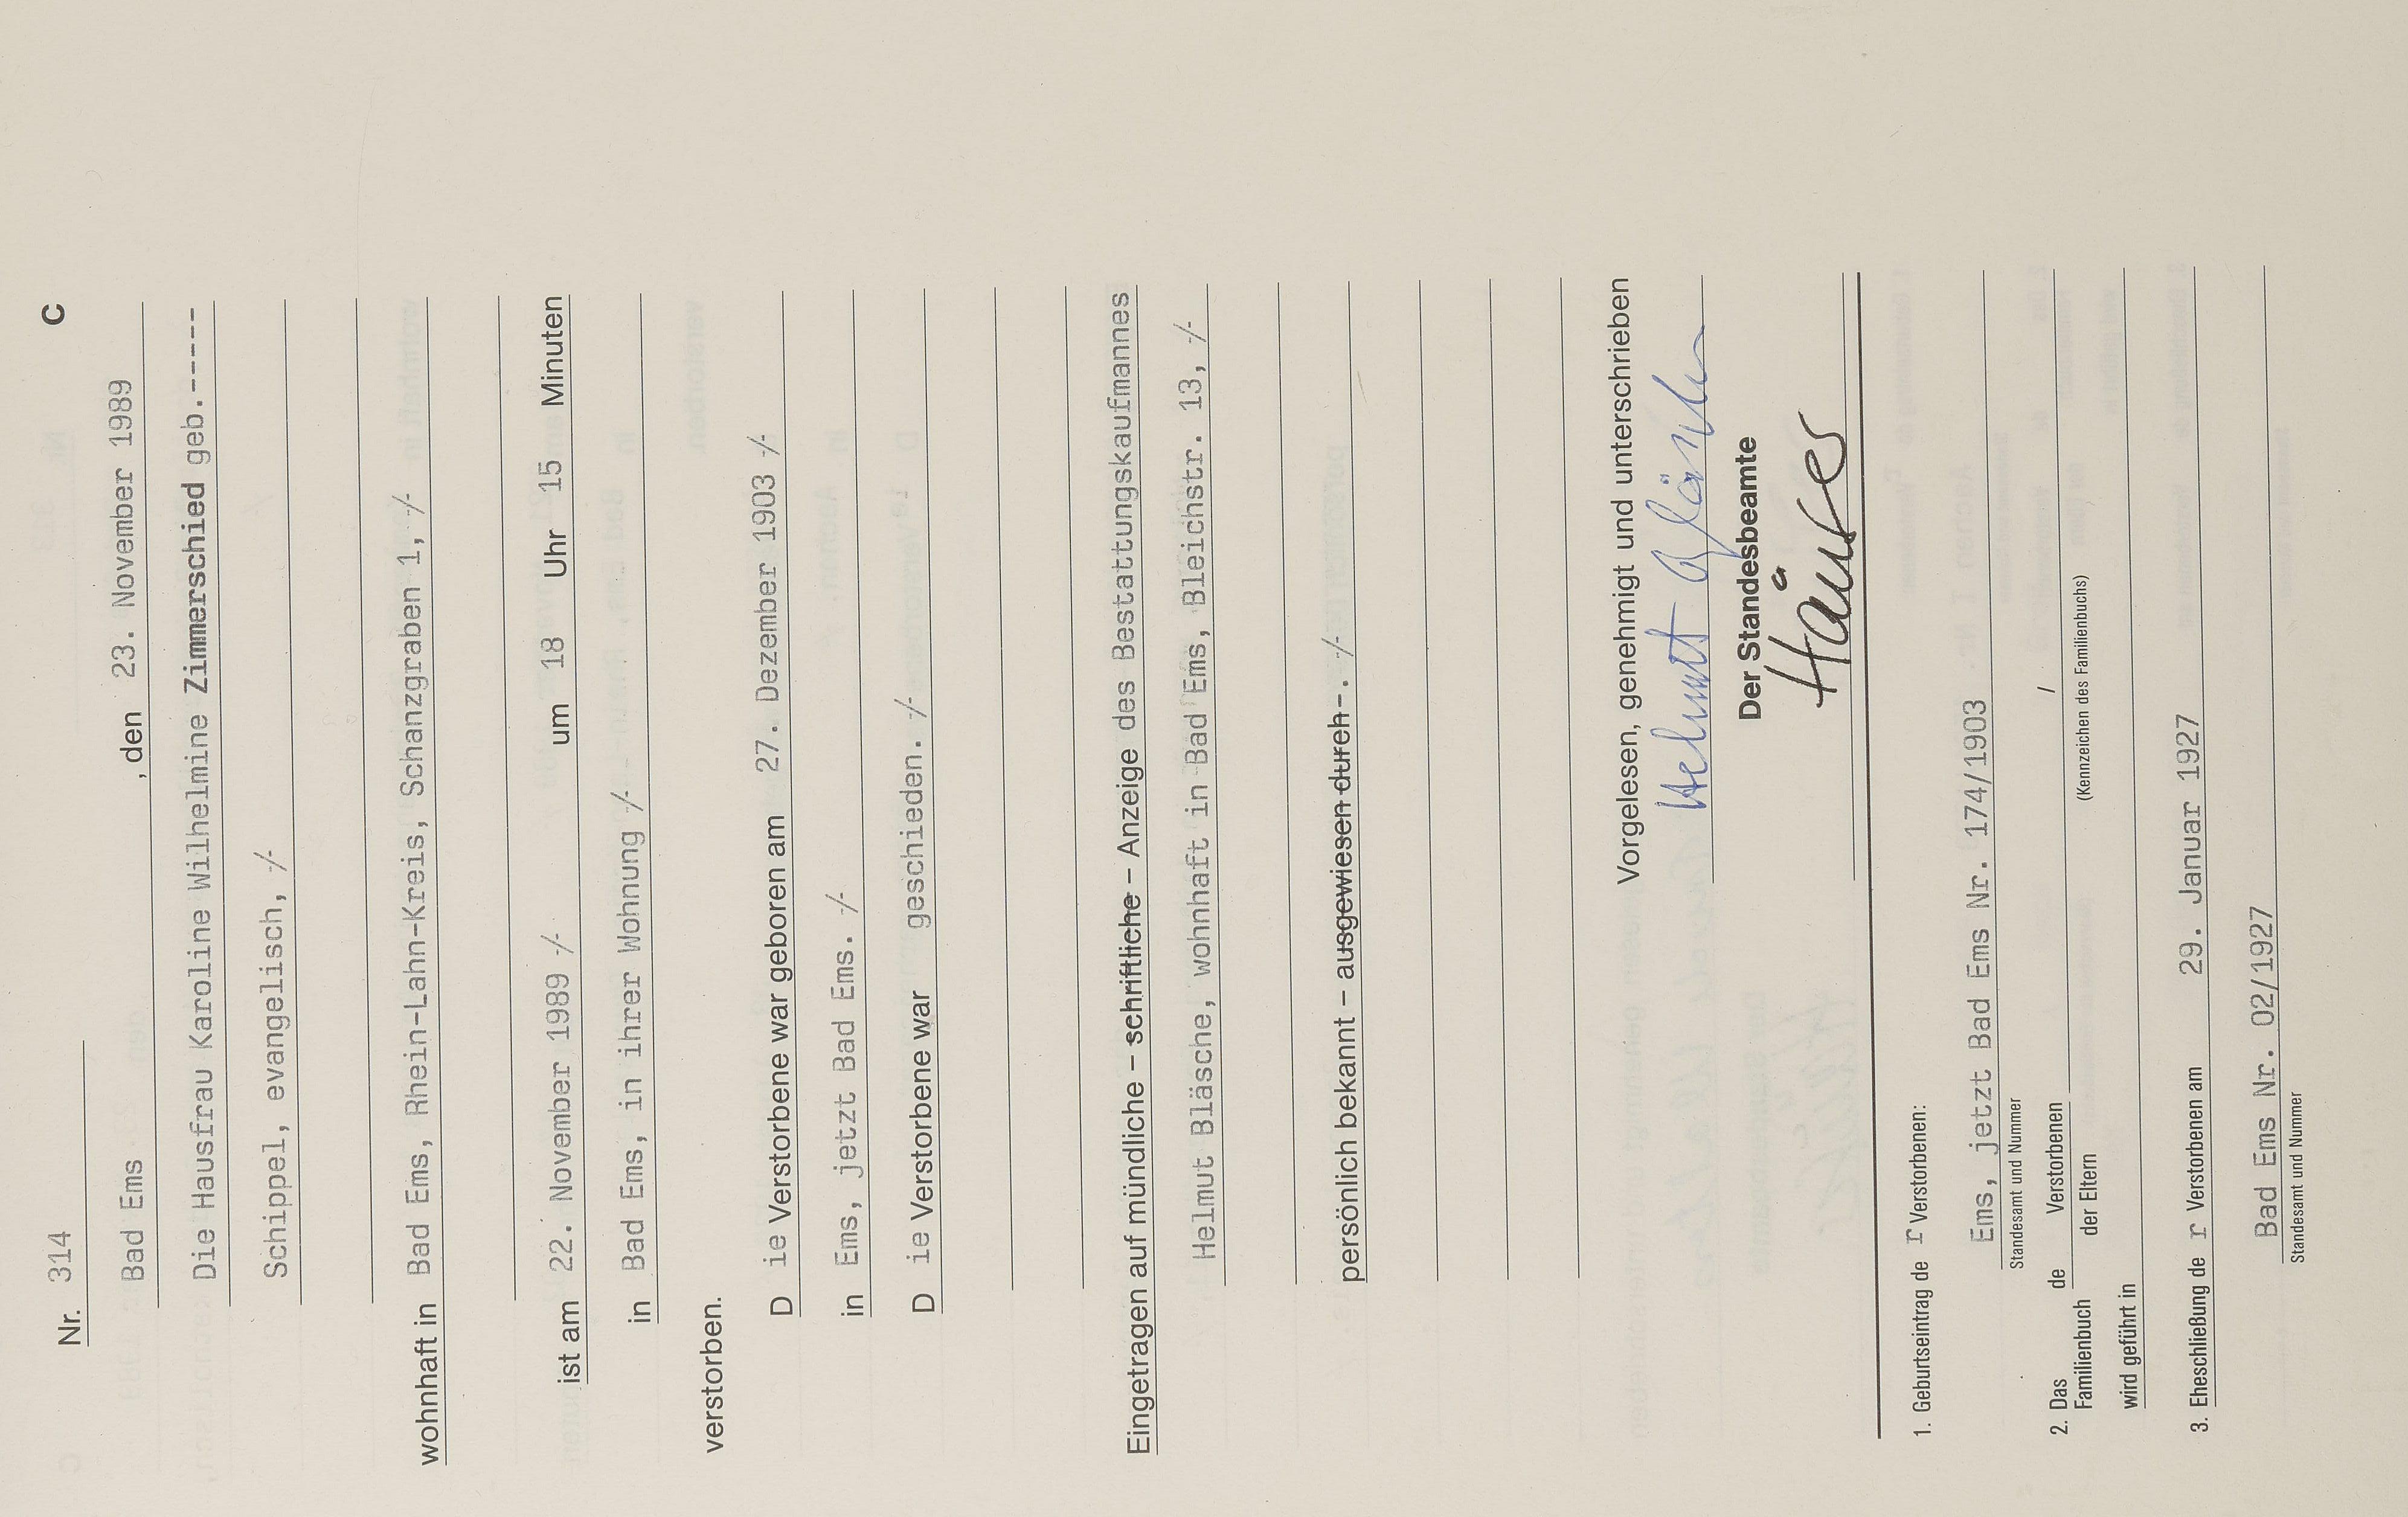 Nr. 314 C
Bad Ems , den 23. November 1989
Die Hausfrau Karoline Wilhelmine Zimmerschied geb.------
Schippel, evangelisch, -/-
wohnhaft in Bad Ems, Rhein-Lahn-Kreis, Schanzgraben 1, -/-
ist am 22. November 1989 -/- um 18 Uhr 15 Minuten
in Bad Ems, in ihrer Wohnung -/-
verstorben.
D ie Verstorbene war geboren am 27. Dezember 1903 -/-
in Ems, jetzt Bad Ems. -/-
D ie Verstorbene war geschieden. -/-
Eingetragen auf mündliche – schriftliche – Anzeige des Bestattungskaufmannes
Helmut Bläsche, wohnhaft in Bad Ems, Bleichstr. 13, -/-
persönlich bekannt – ausgewiesen durch-. -/-
Vorgelesen, genehmigt und unterschrieben
Helmut Bläsche
Der Standesbeamte
Häuser
1. Geburtseintrag de r Verstorbenen:
Ems, jetzt Bad Ems Nr. 174/1903
Standesamt und Nummer
2. Das Familienbuch de Verstorbenen der Eltern /
(Kennzeichen des Familienbuchs)
wird geführt in
3. Eheschließung de r Verstorbenen am 29. Januar 1927
Bad Ems Nr. 02/1927
Standesamt und Nummer